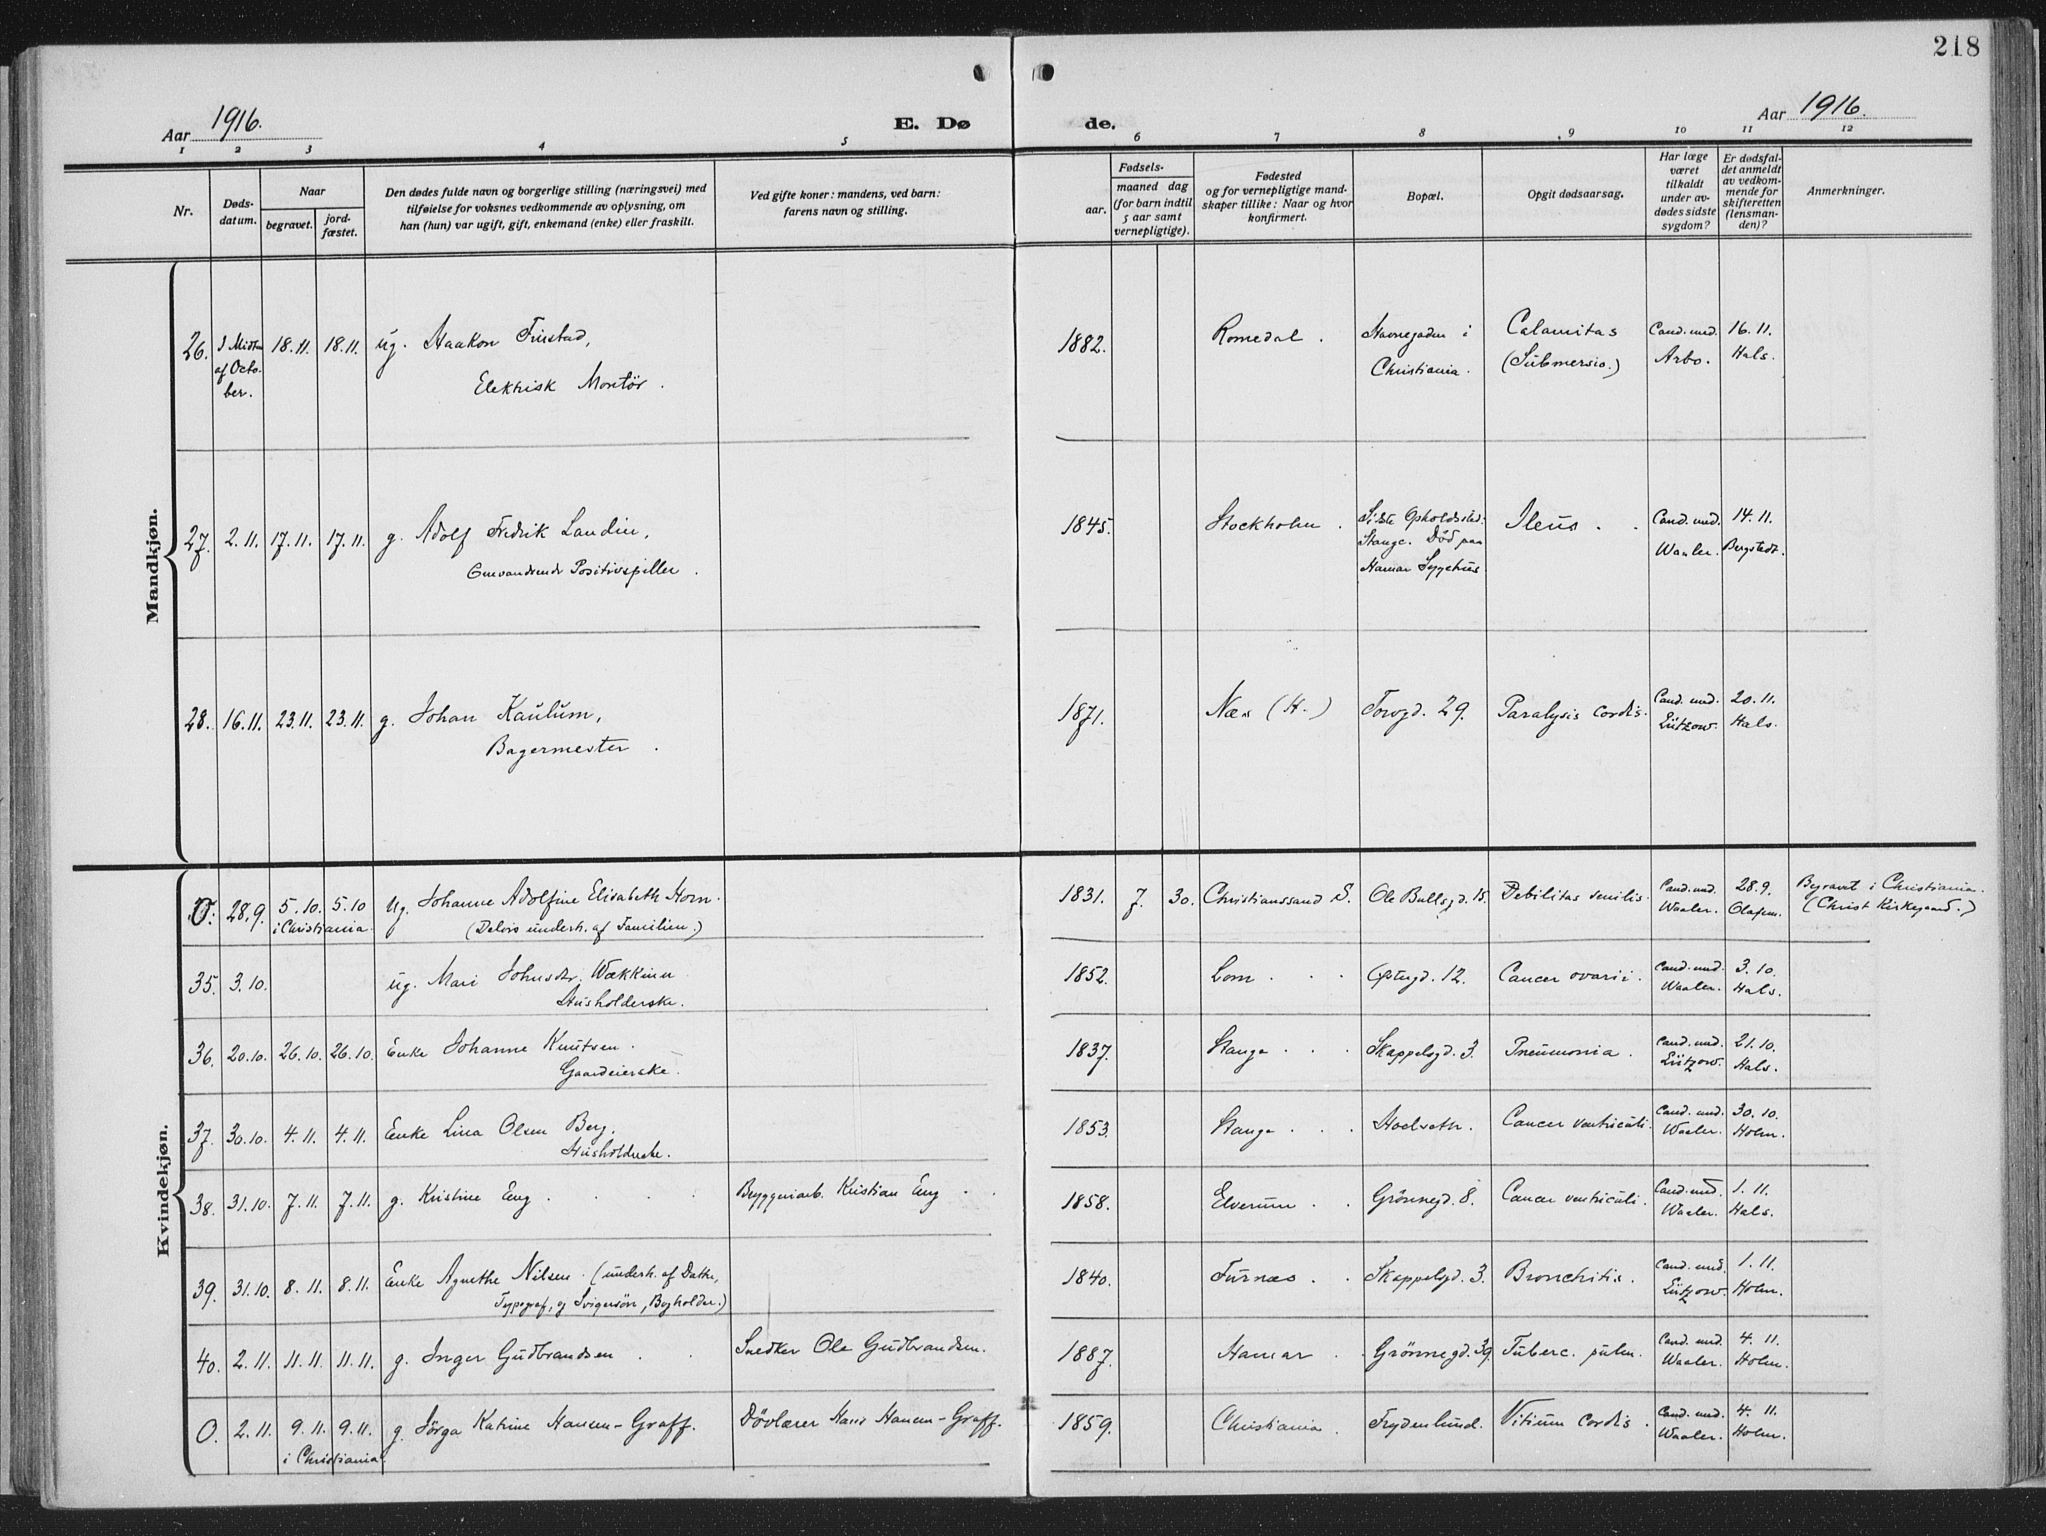 218
Aar 1916.
E. Dø de.
Aar 1916.
1 2 3 4 5 6 7 8 9 10 11 12
Nr.
Døds-
datum.
Naar
begravet.
jord-
fæstet.
Den dødes fulde navn og borgerlige stilling (næringsvei) med
tilføielse for voksnes vedkommende av oplysning, om
han (hun) var ugift, gift, enkemand (enke) eller fraskilt.
Ved gifte koner: mandens, ved barn:
farens navn og stilling.
Fødsels-
aar.
maaned dag
(for barn indtil
5 aar samt
vernepligtige).
Fødested
og for vernepligtige mand-
skaper tillike: Naar og hvor
konfirmert.
Bopæl.
Opgit dødsaarsag.
Har læge
været
tilkaldt
under av-
dødes sidste
sygdom?
Er dødsfal-
det anmeldt
av vedkom-
mende for
skifteretten
(lensman-
den)?
Anmerkninger.
Mandkjøn.
26. I Midten 18.11. 18.11. ug. Haakon Finstad, 1882. Romedal. Stavnegaden i Calamitas Cand. med. 16.11.
af Octo- Elektrisk Montör. Christiania. (Submersio.) Arbo. Hals.
ber.
27. 2.11. 17.11. 17.11. g. Adolf Fredrik Landin, 1845. Stockholm. Sidste Opholdssted: Ileus. Cand. med. 14.11.
Omvandrende Positivspiller. Stange. Död paa Waaler. Bergstedt.
Hamar Sygehus.
28. 16.11. 23.11. 23.11. g. Johan Kaulum, 1871. Næs (H.) Torvgd. 29. Paralysis cordis. Cand. med. 20.11.
Bagermester. Lützow. Hals.
Kvindekjøn.
0. 28.9. 5.10. 5.10 ug. Johanne Adolfine Elisabeth Horn. 1831. 7. 30. Christianssand S. Ole Bullsgd. 15. Debilitas senilis. Cand. med. 28.9. Begravet i Christiania.
i Christiania. (Delvis underh. af Familien.) Waaler. Olafsen. (Christ Kirkegaard.)
35. 3.10. ug. Mari Johnsdr. Wækkinn 1852. Lom. Østregd. 12. Cancer ovarii. Cand. med. 3.10.
Husholderske. Waaler. Hals.
36. 20.10. 26.10. 26.10. Enke Johanne Knutsen. 1837. Stange. Skappelsgd. 3. Pneumonia. Cand. med. 21.10.
Gaardeierske. Lützow. Hals.
37. 30.10. 4.11. 4.11. Enke Lina Olsen Berg. 1853. Stange. Hoelseth. Cancer ventriculi. Cand. med. 30.10.
Husholderske. Waaler. Holm.
38. 31.10. 7.11. 7.11. g. Kristine Eng. Bryggeriarb. Kristian Eng. 1858. Elverum. Grönnegd. 8. Cancer ventriculi. Cand. med. 1.11.
Waaler. Hals.
39. 31.10. 8.11. 8.11. Enke Agnethe Nilsen. (underh. af Datter, 1840. Furnæs. Skappelsgd. 3. Bronchitis. Cand. med. 1.11.
Typograf, og Svigersön, Bogholder.) Lützow. Holm.
40. 2.11. 11.11. 11.11. g. Inger Gudbrandsen. Snedker Ole Gudbrandsen. 1887. Hamar. Grönnegd. 39. Tuberc. pulm. Cand. med. 4.11.
Waaler. Holm.
0. 2.11. 9.11. 9.11. g. Jörga Katrine Hansen-Graff. Dövlærer Hans Hansen-Graff. 1859. Christiania. Frydenlund. Vitium cordis. Cand. med. 4.11.
i Christiania. Waaler. Holm.